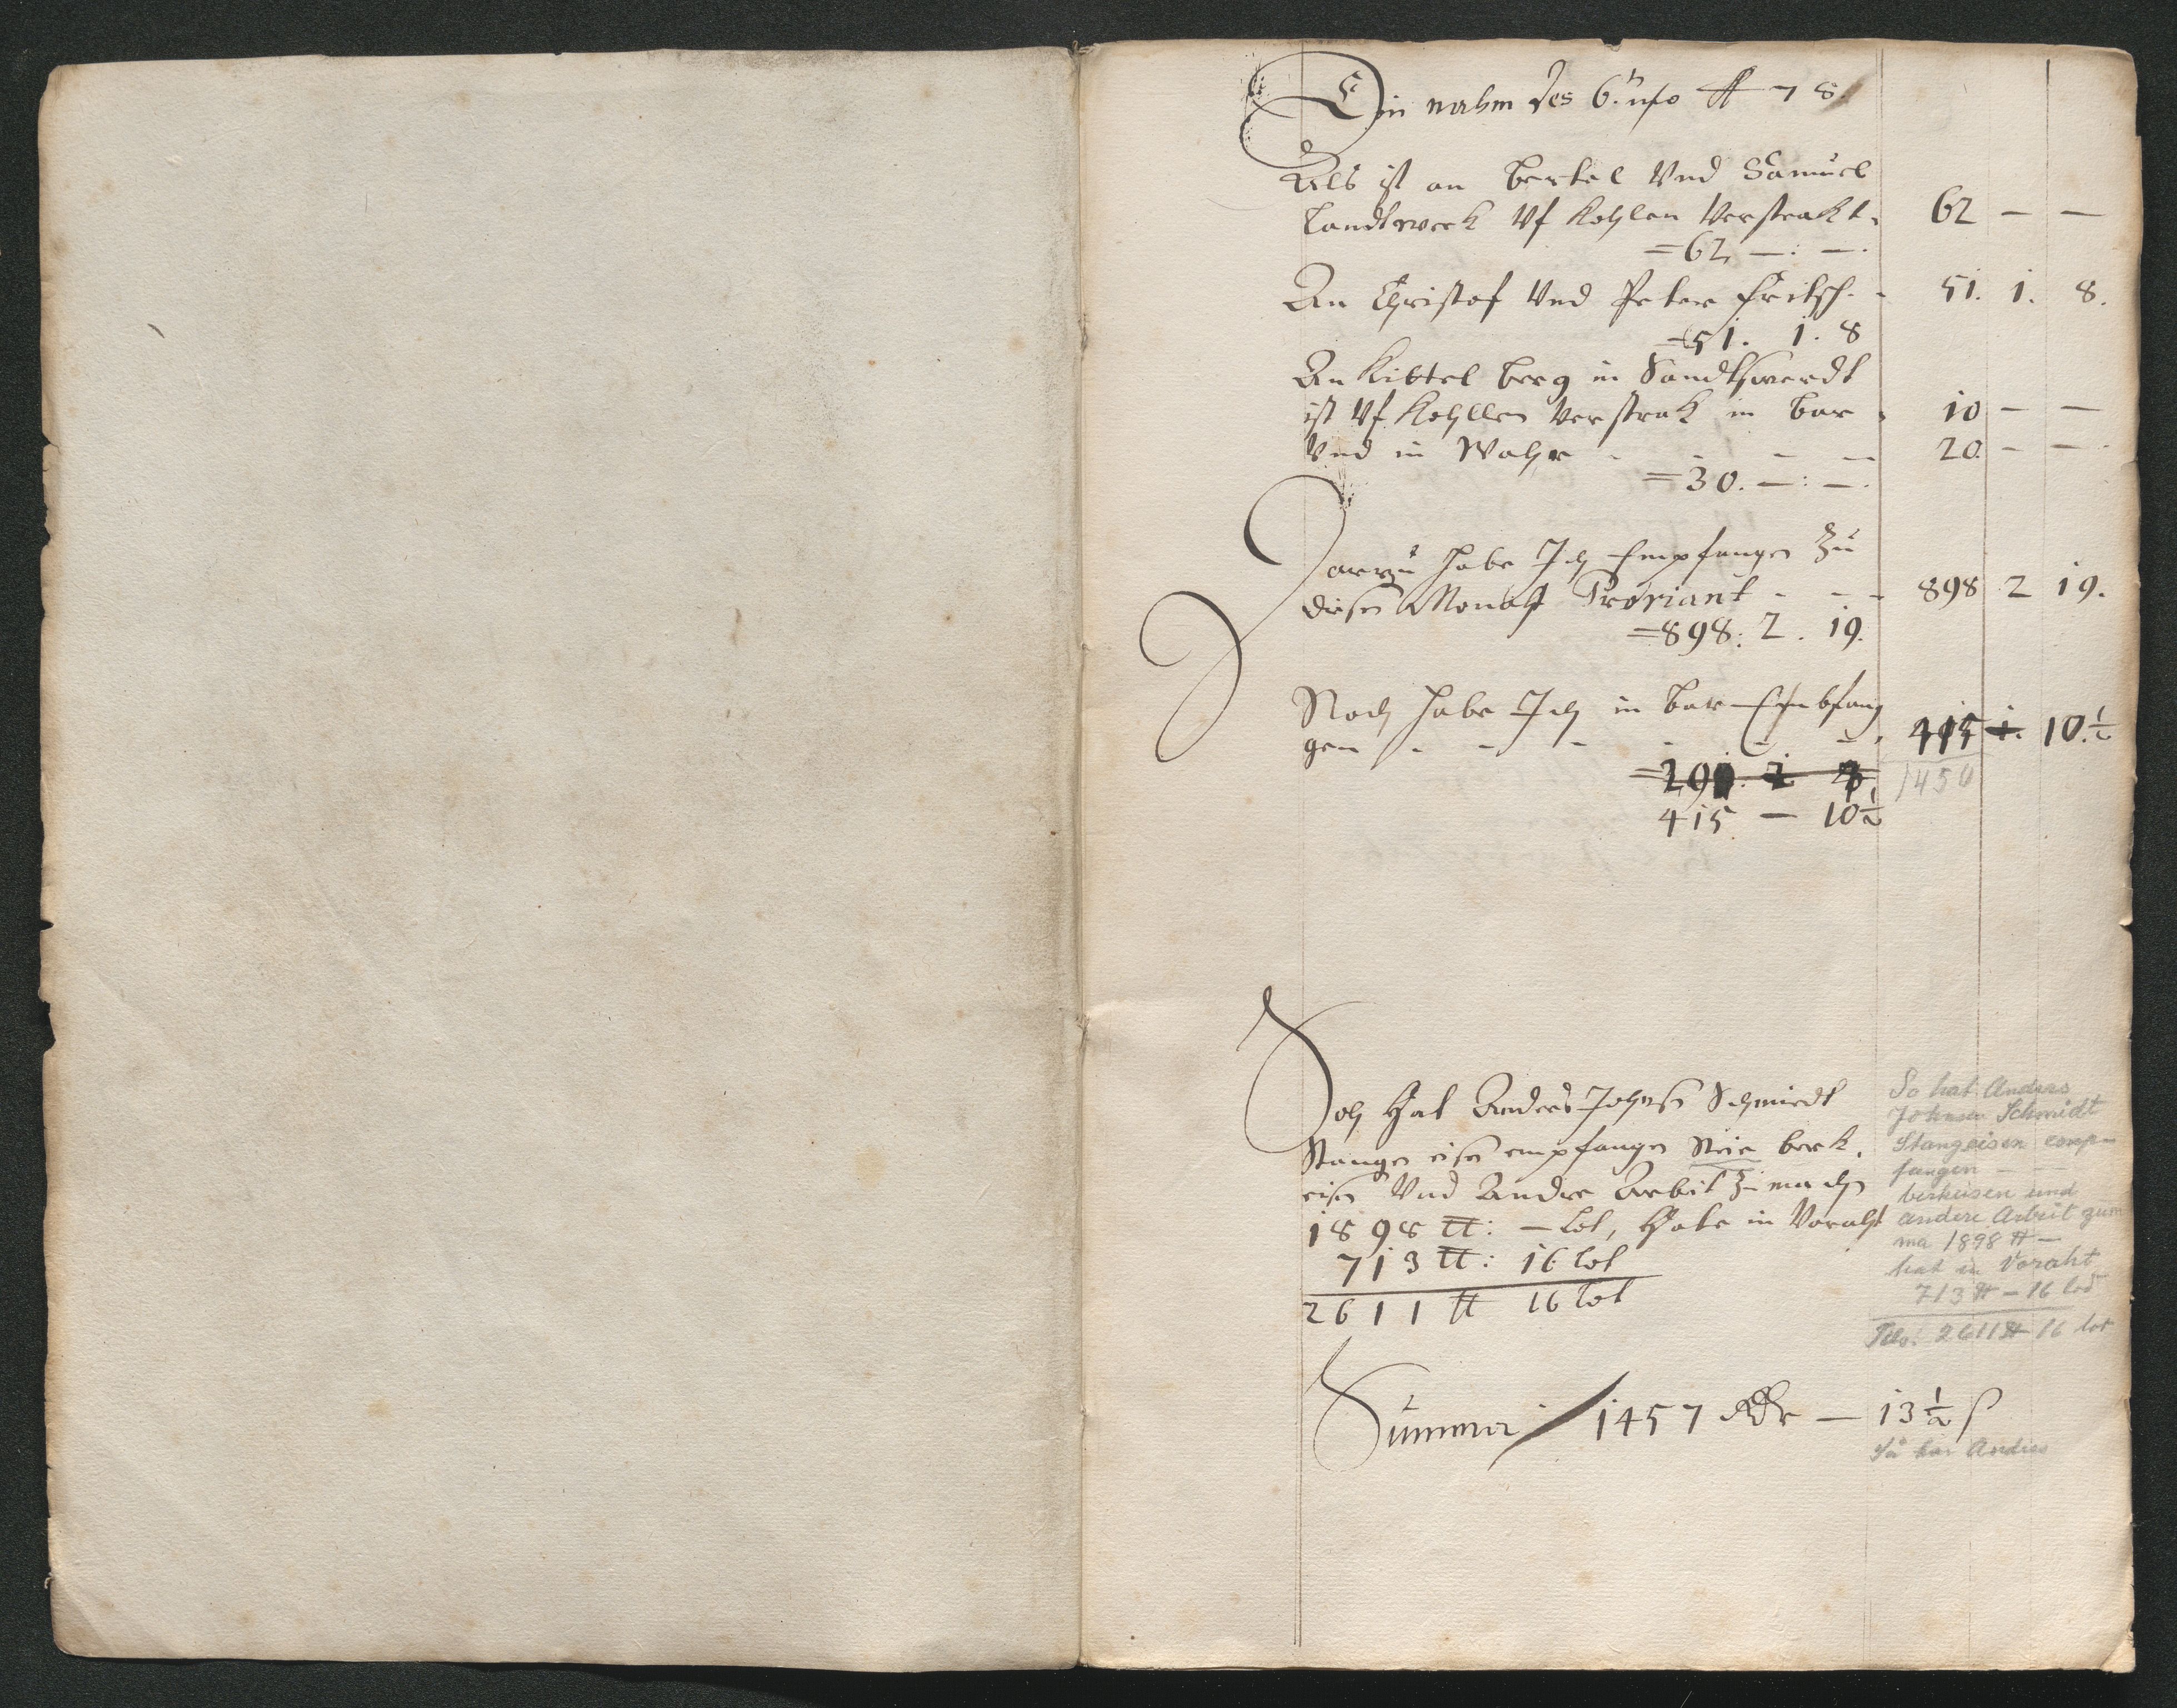 Ein nahm des 6. 78
Als ist an Bertel Vnd Samuel
Landtwerk Vf Kohlen Verstrakt. 62 — —
=62 —: —.
An Christof Vnd Peter Fritsch. - 51. 1. 8.
=51. 1. 8
An Kittel berg in Sandtswerdt
ist Vf Kohllen Verstrak in bar - 10 — —
Vnd in Wahr - - - — 20. — —
=30. —: —.
Darzu habe Ich Empfangen Zu
diesen Monaht Proviant - - - 898 2 19.
=898: 2. 19.
Noch habe Ich in bar Empfang
gen - - - - - - 415 1. 10.½
1450
415 — 10½
Soh Hat Anders Johnsen Schmiedt
Stangen eisen empfangen berk.
eisen Vnd Andre Arbeit Zu machen
1898 ℔: — Lot, Hate in Voraht
713 ℔: 16 Lot
2611 ℔ 16 Lot
So hat Anders
Johnsen Schmidt
Stangeisen emp-
fangen — —
berkeisen und
andere Arbeit zum
ma 1898 ℔ —
hat in Voraht
713 ℔ — 16 lod
2611 ℔ 16 lot
Summa 1457 Rdr — 13½ ß
Så har Anders